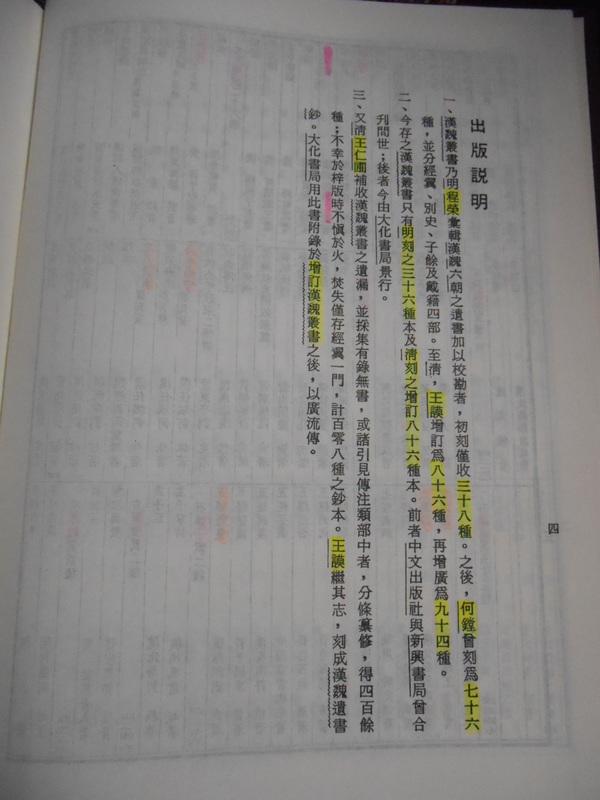 出版説明
一、漢魏叢書乃明程榮彙輯漢魏六朝之遺書加以校勘者，初刻僅收三十八種。之後，何鏜曾刻爲七十六
種，並分經翼、別史、子餘及載籍四部。至清，王謨增訂爲八十六種，再增廣爲九十四種。
二、今存之漢魏叢書只有明刻之三十六種本及清刻之增訂八十六種本。前者中文出版社與新興書局曾合
刋問世；後者今由大化書局景行。
三、又清王仁圃補收漢魏叢書之遺漏，並採集有錄無書，或諸引見傳注類部中者，分條纂修，得四百餘
種；不幸於梓版時不慎於火，焚失僅存經翼一門，計百零八種之鈔本。王謨繼其志，刻成漢魏遺書
鈔。大化書局用此書附錄於增訂漢魏叢書之後，以廣流傳。
四